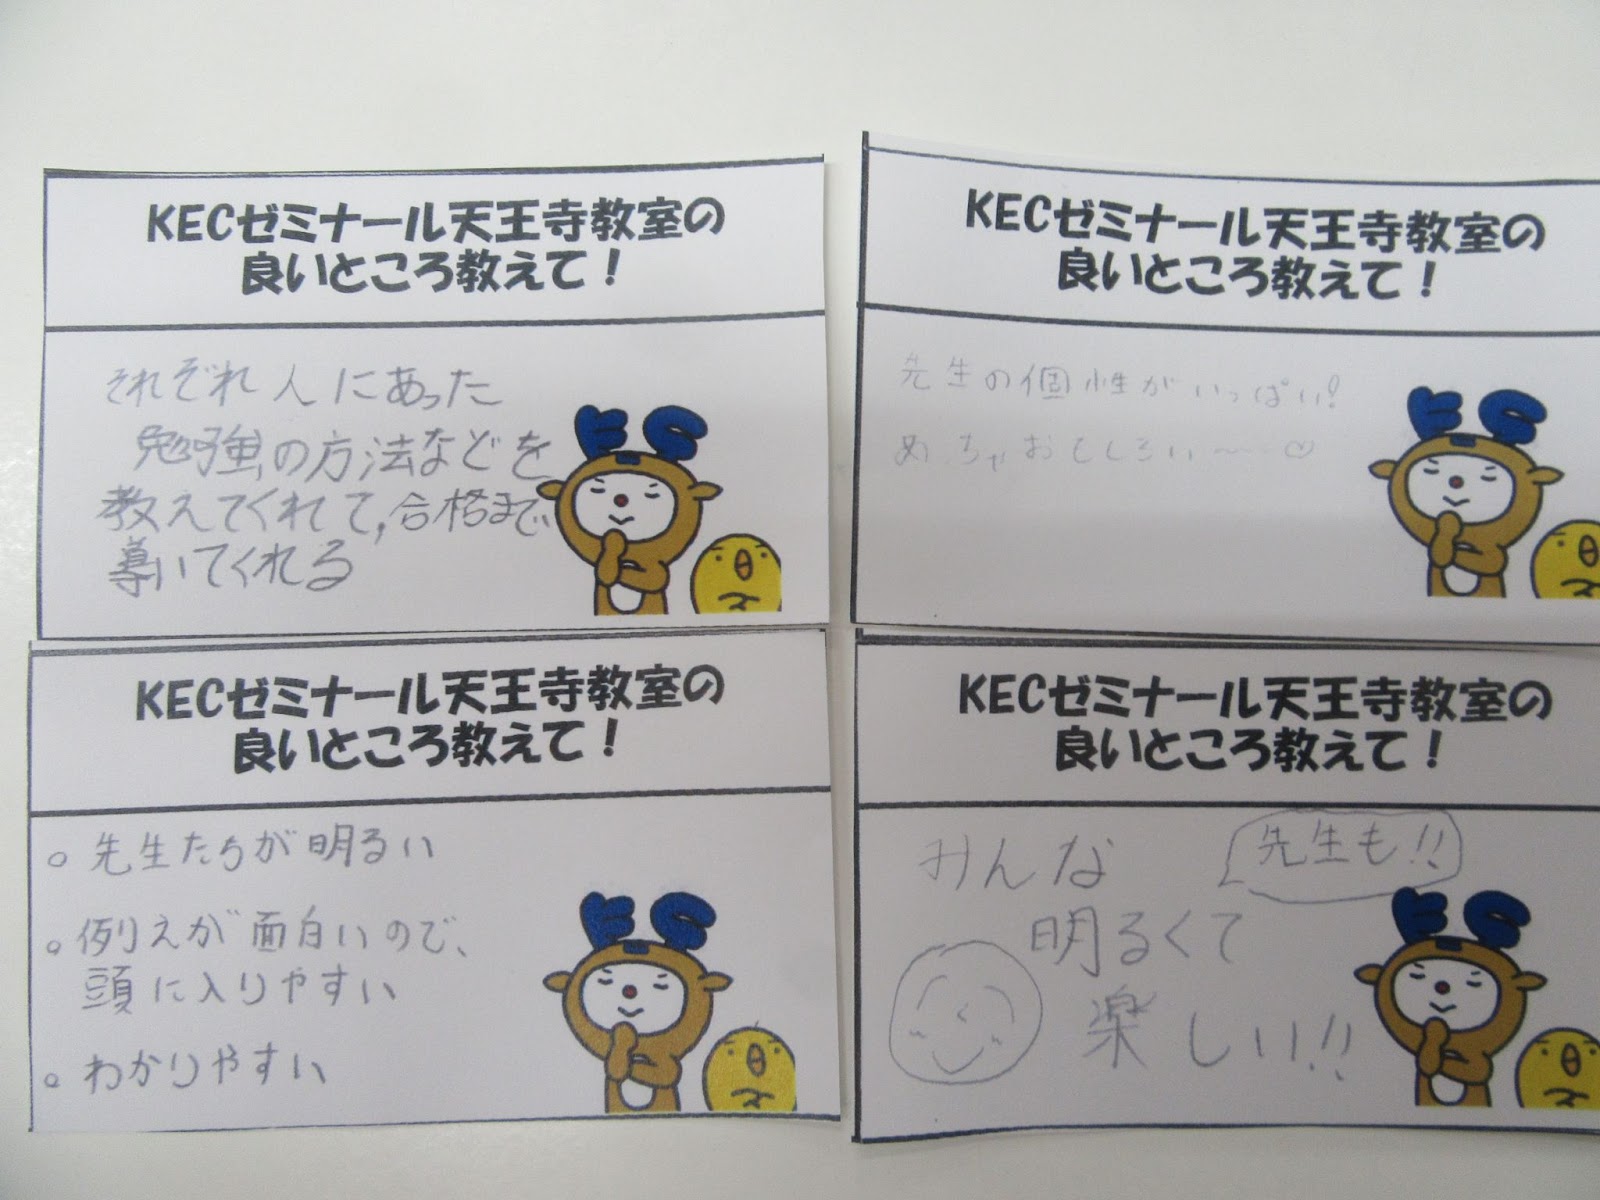 KECゼミナール天王寺教室の
良いところ教えて！
それぞれ人にあった
勉強の方法などを
教えてくれて,合格まで
導いてくれる
KECゼミナール天王寺教室の
良いところ教えて！
先生の個性がいっぱい!
めっちゃおもしろい〜♡
KECゼミナール天王寺教室の
良いところ教えて！
○ 先生たちが明るい
○ 例えが面白いので、
頭に入りやすい
○ わかりやすい
KECゼミナール天王寺教室の
良いところ教えて！
みんな
先生も!!
明るくて
楽しい!!